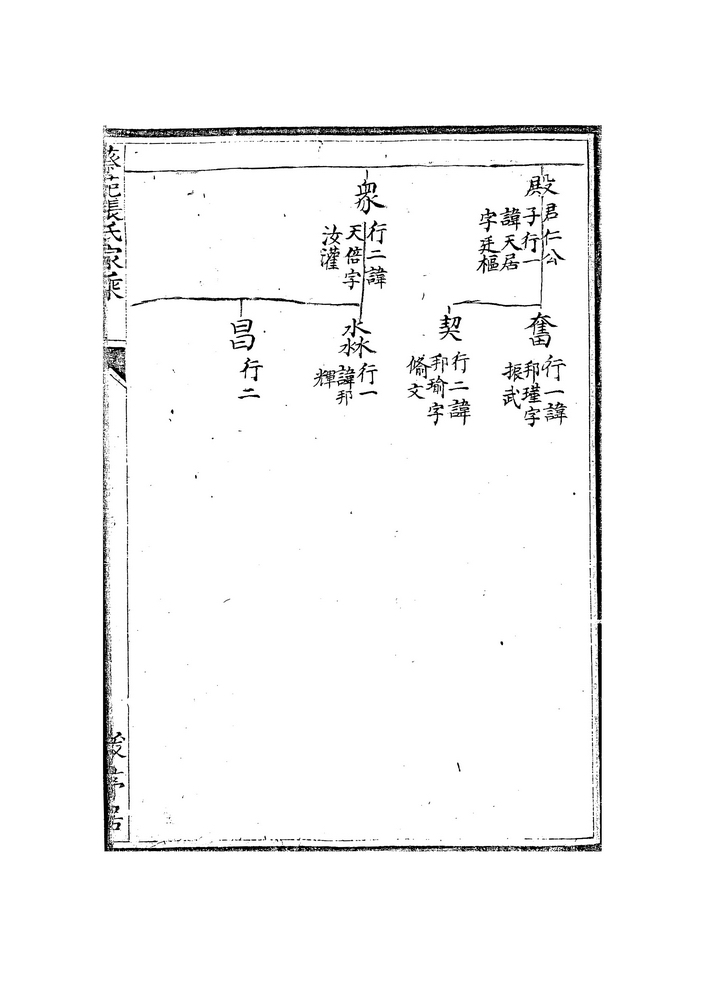 殿
君仁公
子行一
諱天居
字廷樞
眾
行二諱
天倍字
汝灌
奮
行一諱
邦瑾字
振武
契
行二諱
邦瑜字
脩文
淼
行一
諱邦
輝
昌
行二
張氏家乘